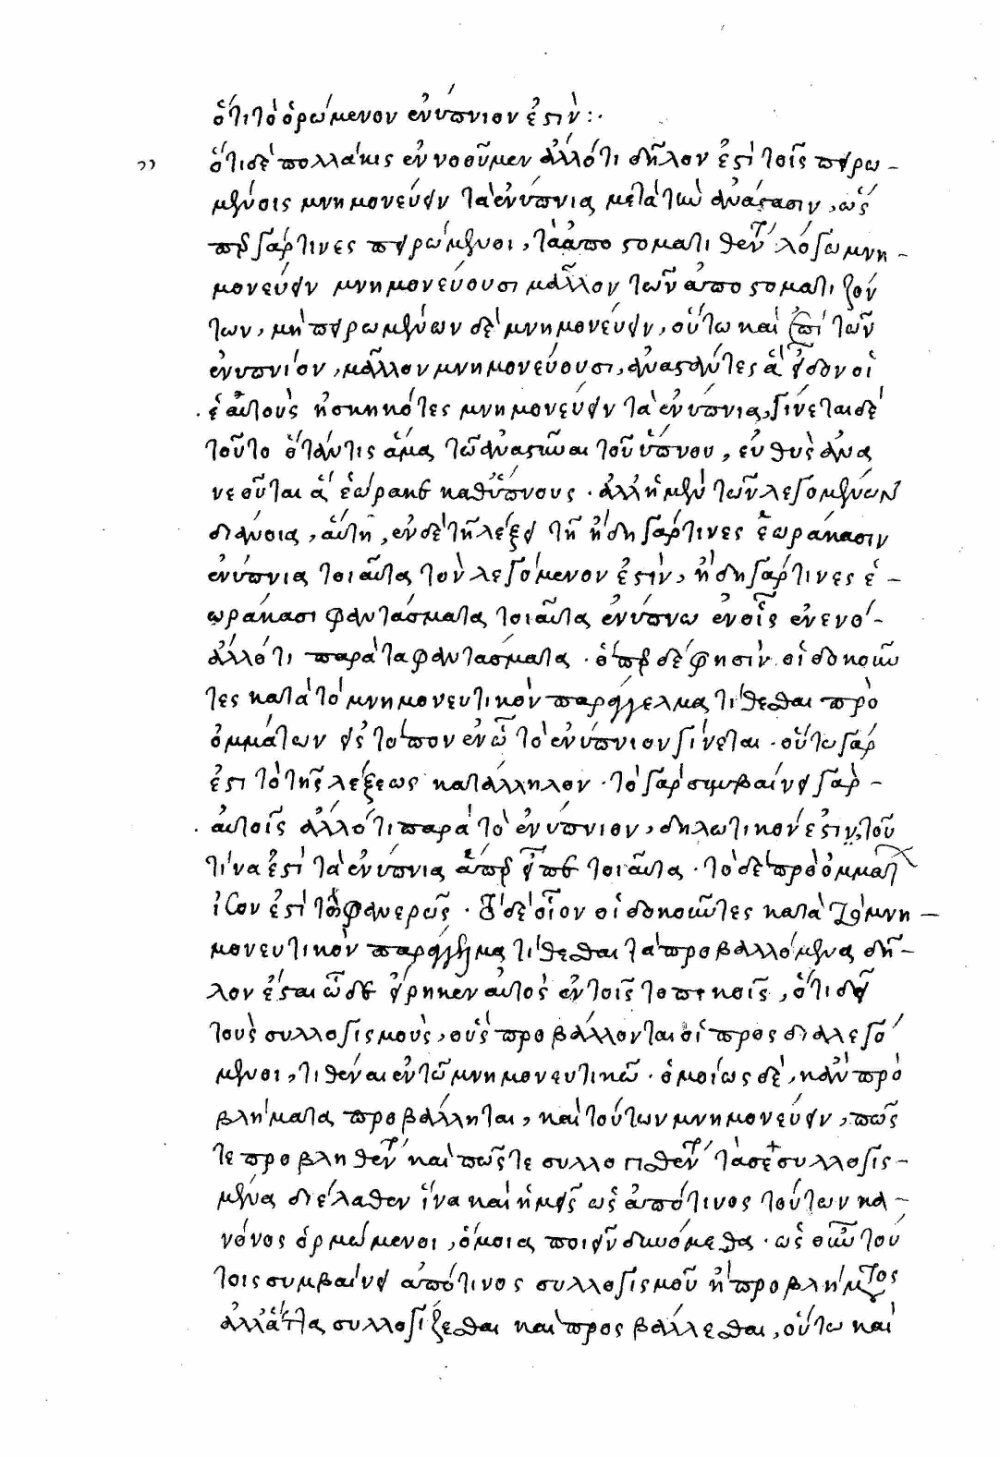 ὅτι τὸ ὁρώμενον ἐνύπνιον ἐστίν :·
ὅτι δὲ πολλάκις ἐννοοῦμεν ἀλλό τι δῆλον ἐστὶ τοῖς πειρω-
μένοις μνημονεύειν τὰ ἐνύπνια μετὰ τὴν ἀνάστασιν, ὡς
γάρ τινες πειρώμενοι, τὰ ἀποστοματι λόγω μνη-
μονεύειν μνημονεύουσι μᾶλλον τῶν ἀποστοματιζόν
των, μὴ πειρωμένων δὲ μνημονεύειν, οὕτω καὶ ἐπὶ τῶν
ἐνυπνίον, μᾶλλον μνημονεύουσι, ἀναστάντες ἃ εἶδον οἱ
ἑαυτοὺς ἠσκηκότες μνημονεύειν τὰ ἐνύπνια, γίνεται δὲ
τοῦτο ὅτάν τις ἅμα τῶ ἀναστῆναι τοῦ ὕπνου, εὐθὺς ἀνα
νεοῦται ἃ ἑώρακε καθ' ὕπνους · ἀλλ' ἡ μὲν τῶν λεγομένων
διάνοια, αὕτη, ἐν δὲ τῆ λέξει τῆ ἤδη γάρ τινες ἑωράκασιν
ἐνύπνια τοιαῦτα τὸν λεγόμενον ἐστὶν, ἤδη γάρ τινες ἑ-
ωράκασι φαντάσματα τοιαῦτα ἐνύπνω ἐν οἷς ἐνενό-
ἀλλό τι παρὰ τα φαντάσματα · ὅπερ δέ φησὶν οἱ δοκοῦν
τες κατὰ τὸ μνημονευτικὸν παράγγελμα τίθεσθαι πρὸ
ὀμμάτων εἰς τόπον ἐν ὧ τὸ ἐνύπνιον γίνεται · οὕτω γάρ
ἐστι τὸ τῆς λέξεως κατάλληλον · τὸ γὰρ συμβαίνει γὰρ-
αὐτοῖς ἀλλό τι παρὰ τὸ ἐνύπνιον, δηλωτικόν ἐστιν, τοῦ
τίνα ἐστὶ τὰ ἐνύπνια ἅπερ εἶπε τοιαῦτα · τὸ δὲ πρὸ ὀμμάτ
ἴσον ἐστὶ τῶ φανερῶς · τὸ δὲ οἷον οἱ δοκοῦντες κατὰ τὸ μνη-
μονευτικὸν παράγγελμα τίθεσθαι τὰ προβαλλόμενα δῆ-
λον ἔσται ὧδε εἴρηκεν αὐτὸς ἐν τοῖς τοπικοῖς, ὅτι δεῖ
τοὺς συλλογισμοὺς, οὓς προβάλλονται οἱ προσδιαλεγό
μενοι, τιθέναι ἐν τῶ μνημονευτικῶ · ὁμοίως δὲ, κἂν προ
βλήματα προβάλληται, καὶ τούτων μνημονεύειν, πῶς
τε προβληθεν καὶ πῶς τε συλλογισθεν συλλογις-
μένα διέλαθεν ἵνα καὶ ἡμεῖς ὡς ἀπό τινος τούτων κα-
νόνος ὁρμώμενοι, ὅμοια ποιεῖν δυνόμεθα · ὡς οὖν τού
τοις συμβαίνει ἀπό τινος συλλογισμοῦ ἢ προβλήματος
ἀλλάττα συλλογίζεσθαι καὶ προσβάλλεσθαι, οὕτω καὶ